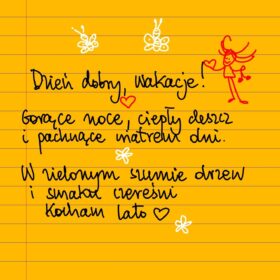 Dzień dobry, wakacje!
Gorące noce, ciepły deszcz
i pachnące wiatrem dni.
W zielonym szumie drzew
i smaku czereśni
Kocham lato ♡